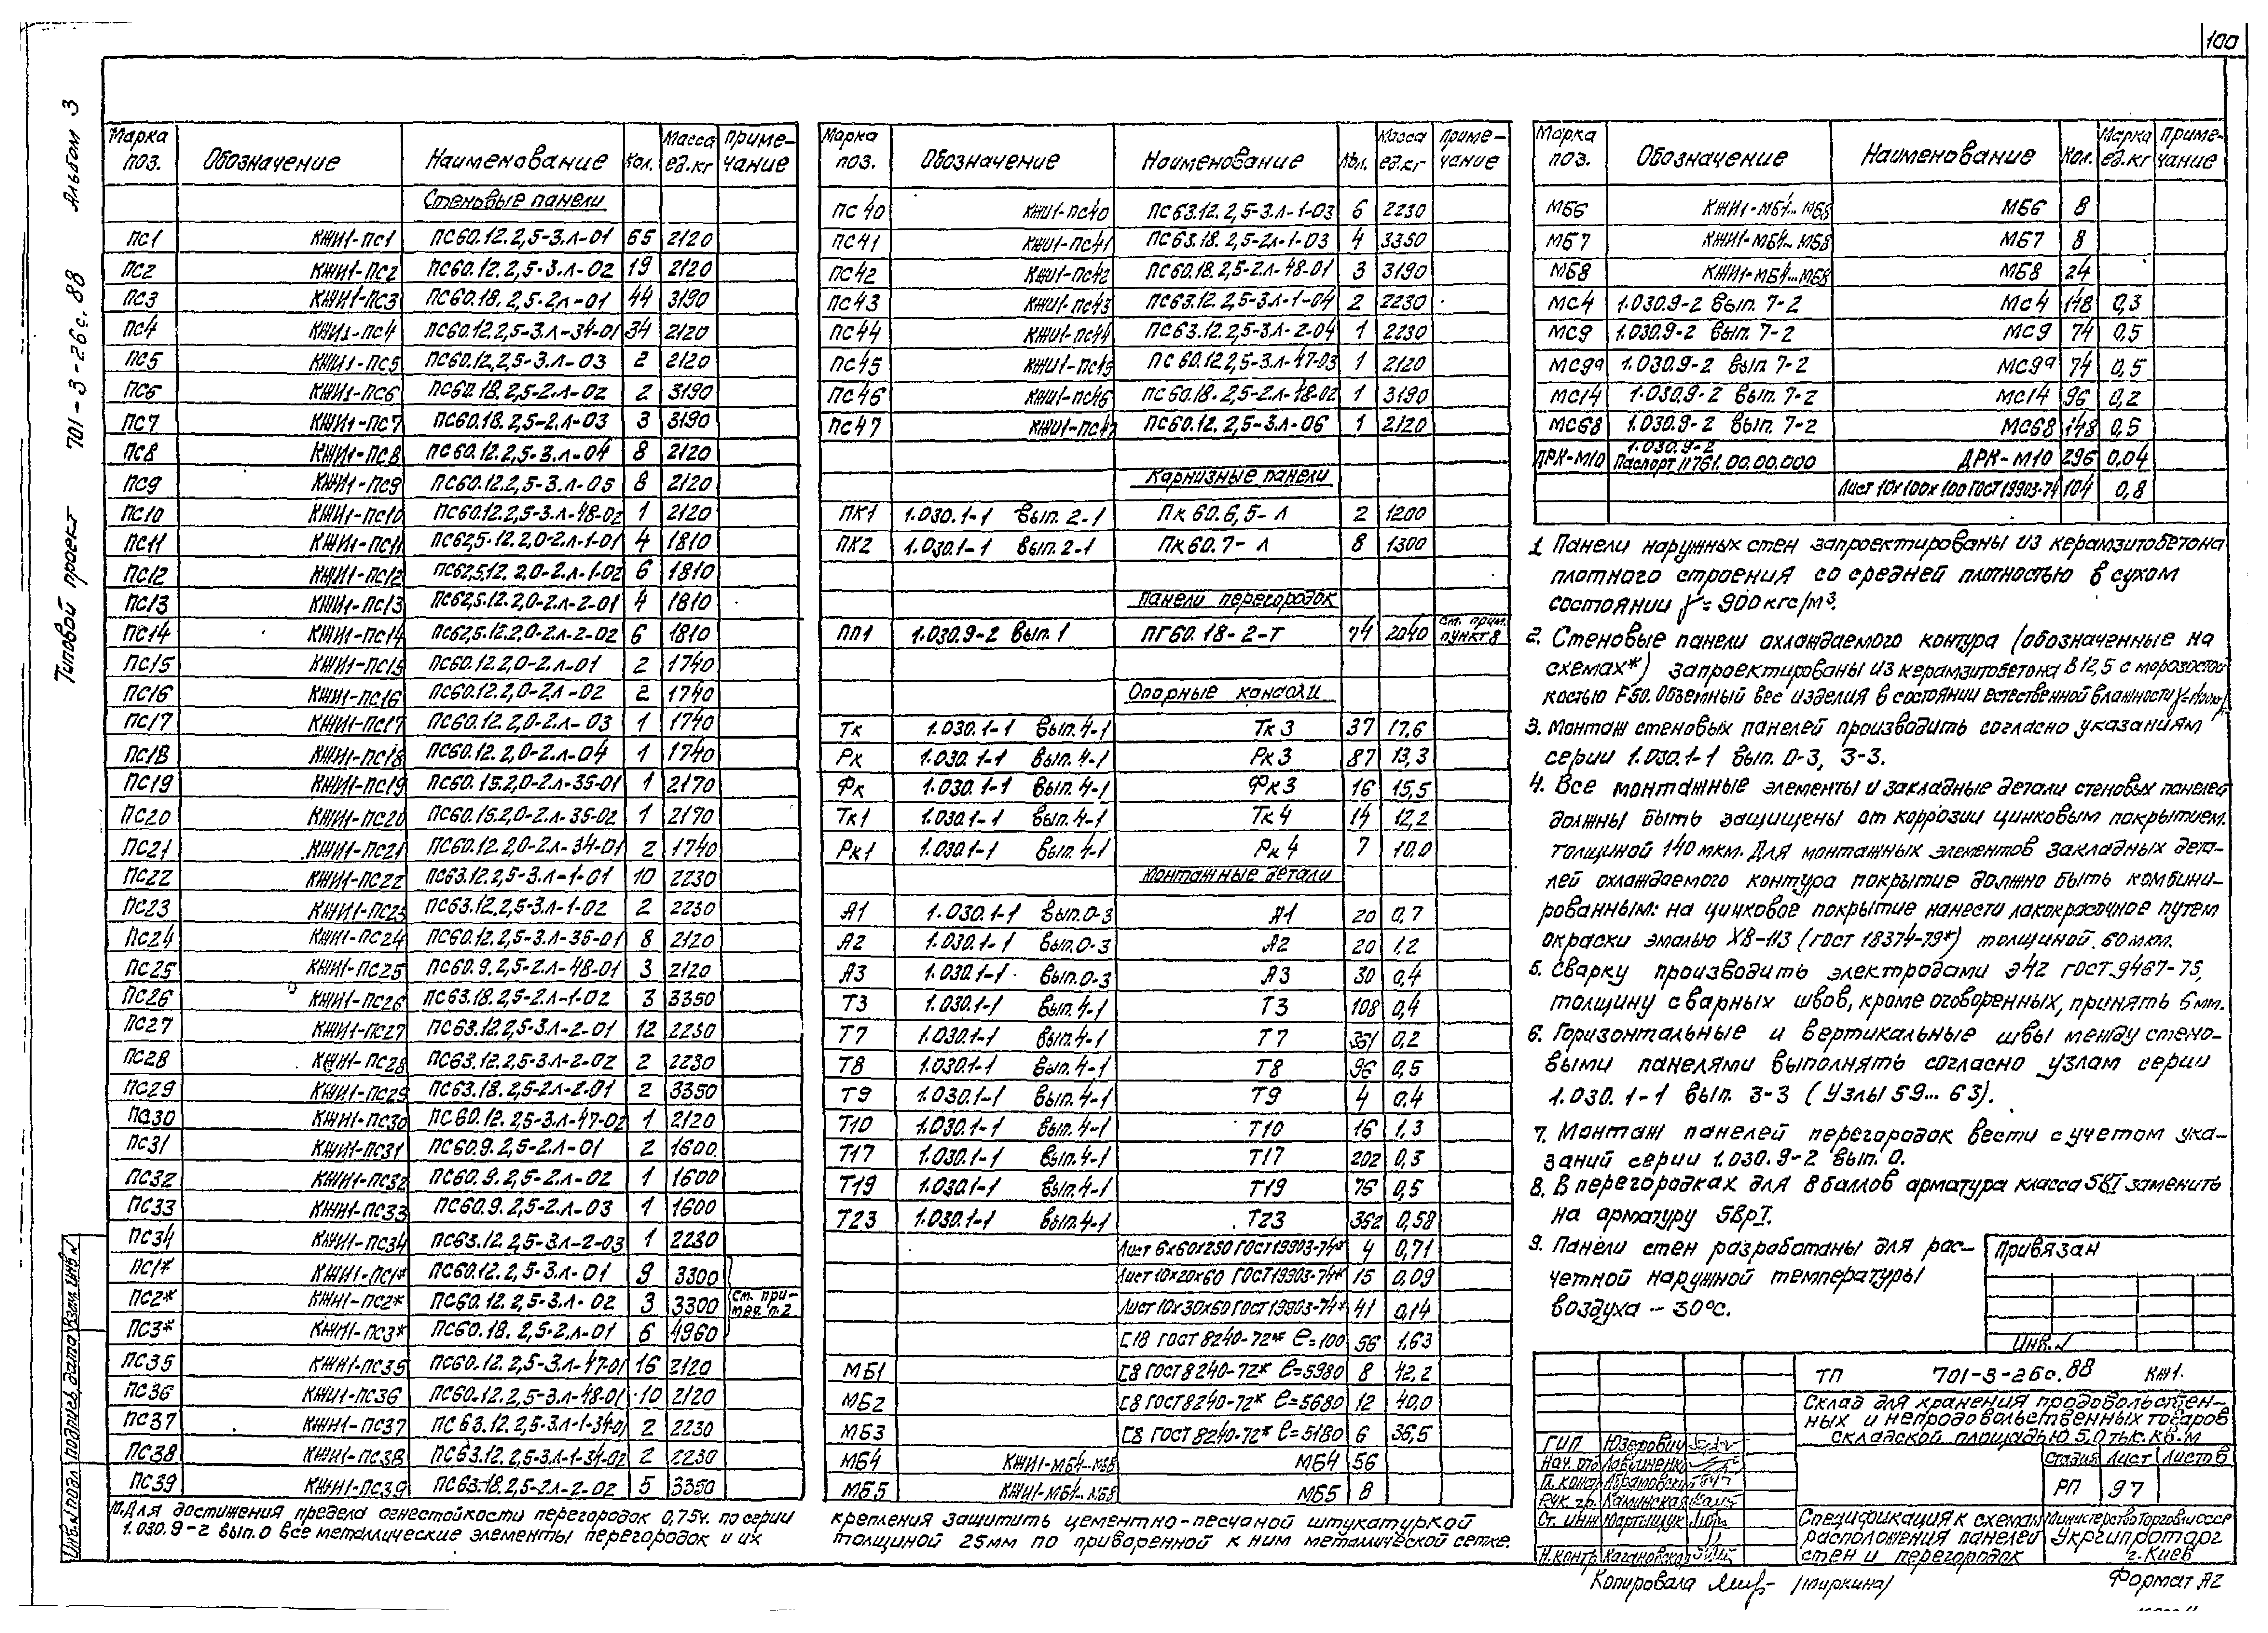 100
Альбом 3
701-3-26с.88
Типовой проект
Марка поз. Обозначение Наименование Кол. Масса ед.кг Примечание
Стеновые панели
ПС1 КЖИ1-ПС1 ПС60.12.2,5-3.Л-01 65 2120
ПС2 КЖИ1-ПС2 ПС60.12.2,5-3.Л-02 19 2120
ПС3 КЖИ1-ПС3 ПС60.18.2,5-2Л-01 44 3190
ПС4 КЖИ1-ПС4 ПС60.12.2,5-3.Л-34-01 34 2120
ПС5 КЖИ1-ПС5 ПС60.12.2,5-3.Л-03 2 2120
ПС6 КЖИ1-ПС6 ПС60.18.2,5-2.Л-02 2 3190
ПС7 КЖИ1-ПС7 ПС60.18.2,5-2.Л-03 3 3190
ПС8 КЖИ1-ПС8 ПС60.12.2,5-3.Л-04 8 2120
ПС9 КЖИ1-ПС9 ПС60.12.2,5-3.Л-05 8 2120
ПС10 КЖИ1-ПС10 ПС60.12.2,5-3.Л-48-02 1 2120
ПС11 КЖИ1-ПС11 ПС62,5.12.2,0-2.Л-1-01 4 1810
ПС12 КЖИ1-ПС12 ПС62,5.12.2,0-2.Л-1-02 6 1810
ПС13 КЖИ1-ПС13 ПС62,5.12.2,0-2.Л-2-01 4 1810
ПС14 КЖИ1-ПС14 ПС62,5.12.2,0-2.Л-2-02 6 1810
ПС15 КЖИ1-ПС15 ПС60.12.2,0-2.Л-01 2 1740
ПС16 КЖИ1-ПС16 ПС60.12.2,0-2Л-02 2 1740
ПС17 КЖИ1-ПС17 ПС60.12.2,0-2.Л-03 1 1740
ПС18 КЖИ1-ПС18 ПС60.12.2,0-2.Л-04 1 1740
ПС19 КЖИ1-ПС19 ПС60.15.2,0-2.Л-35-01 1 2170
ПС20 КЖИ1-ПС20 ПС60.15.2,0-2.Л-35-02 1 2170
ПС21 КЖИ1-ПС21 ПС60.12.2,0-2Л-34-01 2 1740
ПС22 КЖИ1-ПС22 ПС63.12.2,5-3.Л-1-01 10 2230
ПС23 КЖИ1-ПС23 ПС63.12.2,5-3Л-1-02 2 2230
ПС24 КЖИ1-ПС24 ПС60.12.2,5-3.Л-35-01 8 2120
ПС25 КЖИ1-ПС25 ПС60.9.2,5-2.Л-48-01 3 2120
ПС26 КЖИ1-ПС26 ПС63.18.2,5-2Л-1-02 3 3350
ПС27 КЖИ1-ПС27 ПС63.12.2,5-3.Л-2-01 12 2230
ПС28 КЖИ1-ПС28 ПС63.12.2,5-3Л-2-02 2 2230
ПС29 КЖИ1-ПС29 ПС63.18.2,5-2.Л-2-01 2 3350
ПС30 КЖИ1-ПС30 ПС60.12.2,5-3.Л-47-02 1 2120
ПС31 КЖИ1-ПС31 ПС60.9.2,5-2.Л-01 2 1600
ПС32 КЖИ1-ПС32 ПС60.9.2,5-2.Л-02 1 1600
ПС33 КЖИ1-ПС33 ПС60.9.2,5-2.Л-03 1 1600
ПС34 КЖИ1-ПС34 ПС63.12.2,5-3Л-2-03 1 2230
ПС1* КЖИ1-ПС1* ПС60.12.2,5-3.Л-01 9 3300
ПС2* КЖИ1-ПС2* ПС60.12.2,5-3.Л-02 3 3300 См. примеч. п.2
ПС3* КЖИ1-ПС3* ПС60.18.2,5-2.Л-01 6 4960
ПС35 КЖИ1-ПС35 ПС60.12.2,5-3.Л-47-01 16 2120
ПС36 КЖИ1-ПС36 ПС60.12.2,5-3.Л-48-01 10 2120
ПС37 КЖИ1-ПС37 ПС63.12.2,5-3.Л-1-34-01 2 2230
ПС38 КЖИ1-ПС38 ПС63.12.2,5-3.Л-1-34-02 2 2230
ПС39 КЖИ1-ПС39 ПС63.18.2,5-2Л-2-02 5 3350
10. Для достижения предела огнестойкости перегородок 0,75ч. по серии
1.030.9-2 вып.0 все металлические элементы перегородок и их
Марка поз. Обозначение Наименование Кол. Масса ед.кг Примечание
ПС40 КЖИ1-ПС40 ПС63.12.2,5-3.Л-1-03 6 2230
ПС41 КЖИ1-ПС41 ПС63.18.2,5-2Л-1-03 4 3350
ПС42 КЖИ1-ПС42 ПС60.18.2,5-2.Л-48-01 3 3190
ПС43 КЖИ1-ПС43 ПС63.12.2,5-3.Л-1-04 2 2230
ПС44 КЖИ1-ПС44 ПС63.12.2,5-3.Л-2-04 1 2230
ПС45 КЖИ1-ПС45 ПС60.12.2,5-3.Л-47-03 1 2120
ПС46 КЖИ1-ПС46 ПС60.18.2,5-2.Л-48-02 1 3190
ПС47 КЖИ1-ПС47 ПС60.12.2,5-3.Л-06 1 2120
Карнизные панели
ПК1 1.030.1-1 Вып. 2-1 ПК 60.6,5-Л 2 1200
ПК2 1.030.1-1 Вып. 2-1 ПК60.7-Л 8 1300
Панели перегородок
ПП1 1.030.9-2 Вып. 1 ПГ60.18-2-Т 74 2040 См. прим. пункт 8
Опорные консоли
ТК 1.030.1-1 Вып. 4-1 ТК3 37 17,6
РК 1.030.1-1 Вып. 4-1 РК3 87 13,3
ФК 1.030.1-1 Вып. 4-1 ФК3 16 15,5
ТК1 1.030.1-1 Вып. 4-1 ТК4 14 12,2
РК1 1.030.1-1 Вып. 4-1 РК4 7 10.0
Монтажные детали
А1 1.030.1-1 Вып.0-3 А1 20 0,7
А2 1.030.1-1 Вып.0-3 А2 20 1,2
А3 1.030.1-1 Вып.0-3 А3 30 0,4
Т3 1.030.1-1 Вып. 4-1 Т3 108 0,4
Т7 1.030.1-1 Вып. 4-1 Т7 351 0,2
Т8 1.030.1-1 Вып. 4-1 Т8 96 0,5
Т9 1.030.1-1 Вып. 4-1 Т9 4 0,4
Т10 1.030.1-1 Вып. 4-1 Т10 16 1,3
Т17 1.030.1-1 Вып. 4-1 Т17 202 0,3
Т19 1.030.1-1 Вып. 4-1 Т19 76 0,5
Т23 1.030.1-1 Вып. 4-1 Т23 352 0,58
Лист 6х60х250 ГОСТ19903-74* 4 0,71
Лист 10х20х60 ГОСТ19903-74* 15 0,09
Лист 10х30х60 ГОСТ19903-74* 41 0,14
[18 ГОСТ 8240-72* ℓ=100 56 1.63
МБ1 [8 ГОСТ 8240-72* ℓ=5980 8 42,2
МБ2 [8 ГОСТ 8240-72* ℓ=5680 12 40,0
МБ3 [8 ГОСТ 8240-72* ℓ=5180 6 36,5
МБ4 КЖИ1-МБ4...МБ8 МБ4 56
МБ5 КЖИ1-МБ4...МБ8 МБ5 8
крепления защитить цементно-песчаной штукатуркой
толщиной 25мм по приваренной к ним металлической сетке.
Марка поз. Обозначение Наименование Кол. Марка ед.кг Примечание
МБ6 КЖИ1-МБ4...МБ8 МБ6 8
МБ7 КЖИ1-МБ4...МБ8 МБ7 8
МБ8 КЖИ1-МБ4...МБ8 МБ8 24
МС4 1.030.9-2 Вып. 7-2 МС4 148 0,3
МС9 1.030.9-2 Вып. 7-2 МС9 74 0,5
МС9а 1.030.9-2 Вып. 7-2 МС9а 74 0,5
МС14 1.030.9-2 Вып. 7-2 МС14 96 0,2
МС68 1.030.9-2 Вып. 7-2 МС68 148 0,5
ДРК-М10 1.030.9-2 Паспорт 11761.00.00.000 ДРК-М10 296 0,04
Лист 10х100х100 ГОСТ19903-74 104 0,8
1. Панели наружных стен запроектированы из керамзитобетона
плотного строения со средней плотностью в сухом
состоянии γ=900кгс/м³.
2. Стеновые панели охлаждаемого контура (обозначенные на
схемах*) запроектированы из керамзитобетона В12,5 с морозостой
костью F50. Объемный вес изделия в состоянии естественной влажности
3. Монтаж стеновых панелей производить согласно указаниям
серии 1.030.1-1 вып. 0-3, 3-3.
4. Все монтажные элементы и закладные детали стеновых панелей
должны быть защищены от коррозии цинковым покрытием.
толщиной 140мкм. Для монтажных элементов закладных дета-
лей охлаждаемого контура покрытие должно быть комбини-
рованным: на цинковое покрытие нанести лакокрасочное путем
окраски эмалью ХВ-113 (ГОСТ 18374-79*) толщиной 60мкм.
5. Сварку производить электродами Э42 ГОСТ 9467-75,
толщину сварных швов, кроме оговоренных, принять 6мм.
6. Горизонтальные и вертикальные швы между стено-
выми панелями выполнять согласно узлам серии
1.030.1-1 вып. 3-3 (Узлы 59...63).
7. Монтаж панелей перегородок вести с учетом ука-
заний серии 1.030.9-2 вып. 0.
8. В перегородках для 8 баллов арматура класса 5ВI заменить
на арматуру 5ВрI.
9. Панели стен разработаны для рас-
четной наружной температуры
воздуха -30°С.
Привязан
Инв.N
ТП 701-3-26с.88 КЖ1.
Склад для хранения продовольствен-
ных и непродовольственных товаров
складской площадью 5.0 тыс.кв.м
ГИП Юзефович
Нач. отд
Гл. констр Абрамовский
Рук. гр. Каминская
Ст. инж Мартыщук
Н.контр Кагановская
Стадия Лист Листов
РП 97
Спецификация к схемам
расположения панелей
стен и перегородок
Министерство Торговли СССР
Укргипроторг
г. Киев
Копировала (Миркина)
Формат А2
Инв.N подл. Подпись, дата Взам. инв.N